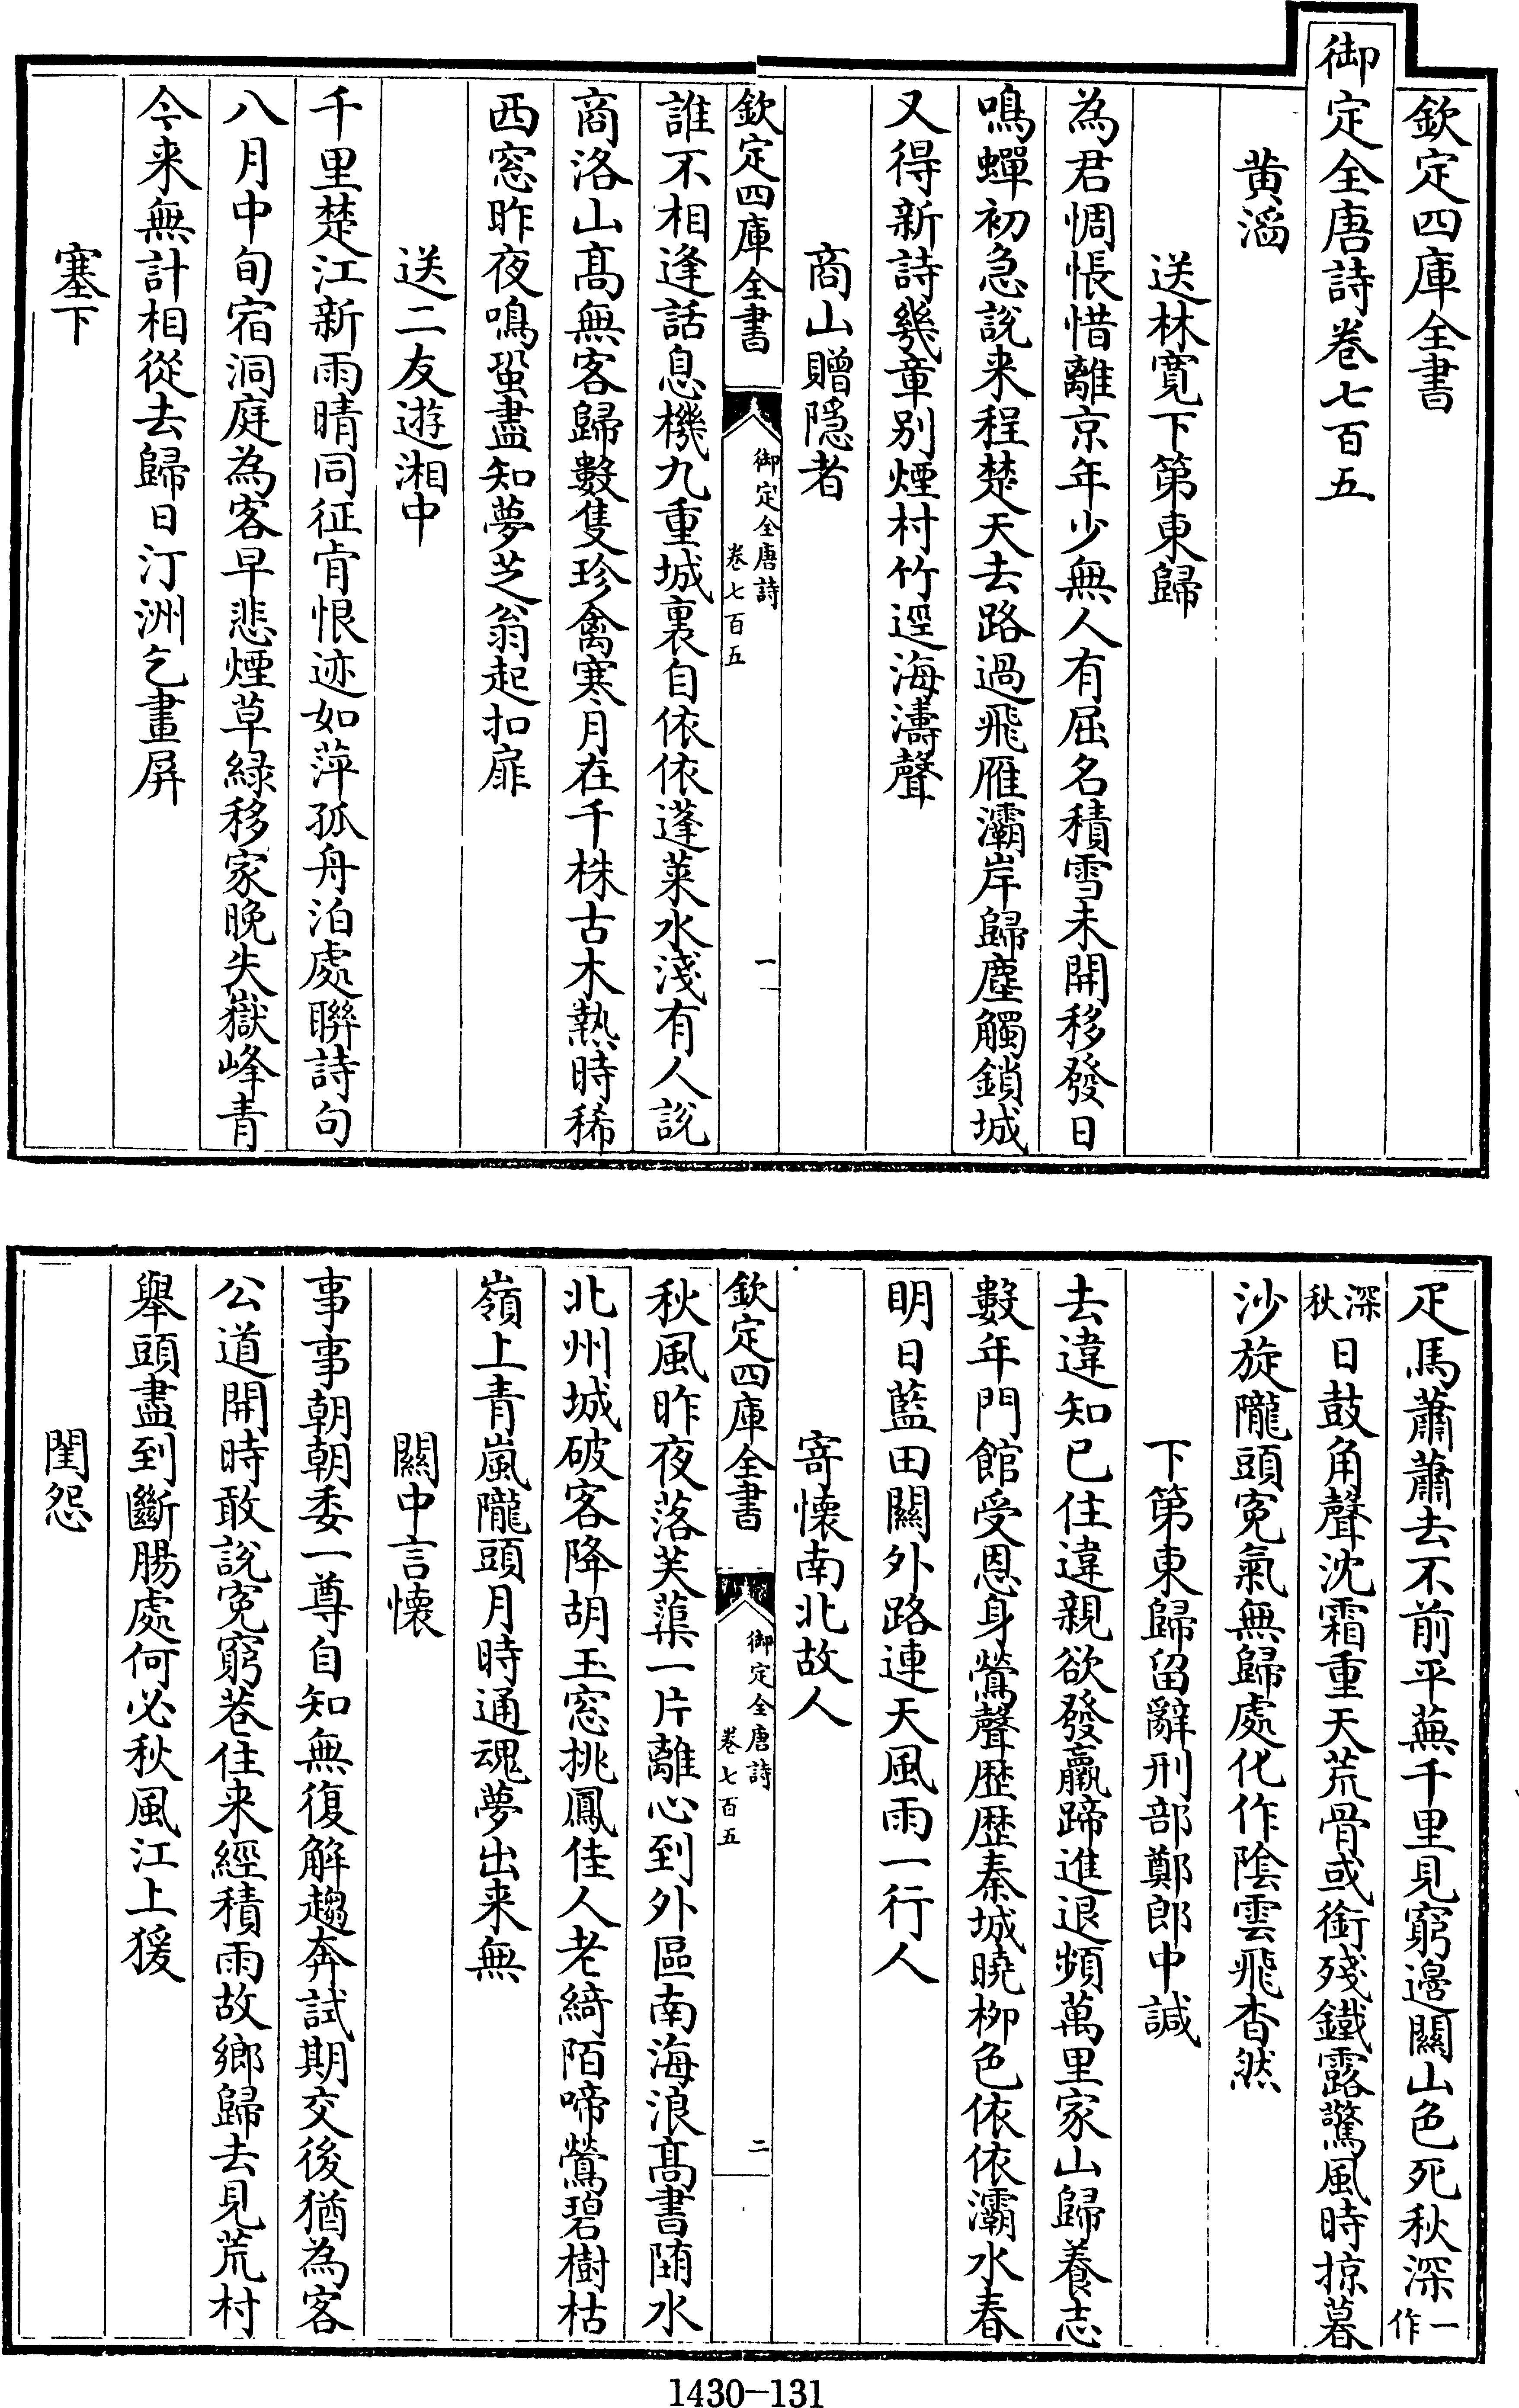 欽定四庫全書
御定全唐詩卷七百五
黄滔
送林寛下第東歸
為君惆悵惜離京年少無人有屈名積雪未開移發日
鳴蟬初急說来程楚天去路過飛雁灞岸歸塵觸鎖城
又得新詩幾章別煙村竹逕海濤聲
商山贈隠者
欽定四庫全書
御定全唐詩
卷七百五
一
誰不相逢話息機九重城裏自依依蓬莱水淺有人說
商洛山髙無客歸數隻珍禽寒月在千株古木熱時稀
西窓昨夜鳴蛩盡知夢芝翁起扣扉
送二友遊湘中
千里楚江新雨晴同征肯恨迹如萍孤舟泊處聯詩句
八月中旬宿洞庭為客早悲煙草緑移家晚失嶽峰青
今来無計相從去歸日汀洲乞畫屏
塞下
疋馬蕭蕭去不前平蕪千里見窮邊關山色死秋深一作
深秋日鼓角聲沈霜重天荒骨或銜殘鐵露驚風時掠暮
沙旋隴頭寃氣無歸處化作陰雲飛杳然
下第東歸留辭刑部鄭郎中諴
去違知已住違親欲發羸蹄進退頻萬里家山歸養志
數年門館受恩身鶯聲歴歴秦城曉柳色依依灞水春
明日藍田關外路連天風雨一行人
寄懐南北故人
欽定四庫全書
御定全唐詩
卷七百五
二
秋風昨夜落芙蕖一片離心到外區南海浪髙書堕水
北州城破客降胡玉窓挑鳳佳人老綺陌啼鶯碧樹枯
嶺上青嵐隴頭月時通魂夢出来無
關中言懐
事事朝朝委一尊自知無復解趨奔試期交後猶為客
公道開時敢說寃窮巷住来經積雨故鄉歸去見荒村
舉頭盡到斷腸處何必秋風江上猨
閨怨
1430—131